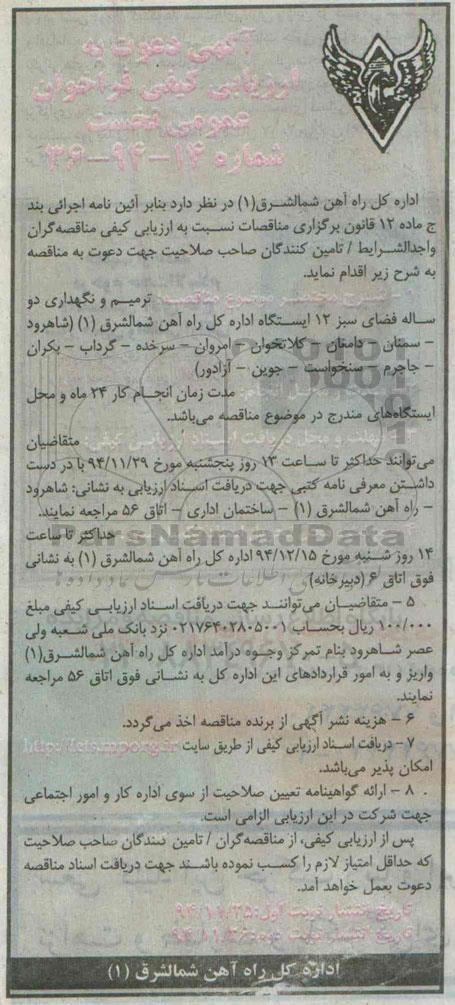 آگهی دعوت به
ارزیابی کیفی فراخوان
عمومی نخست
شماره ۱۴-۹۴-۳۶
اداره کل راه آهن شمالشرق(۱) در نظر دارد بنابر آئین نامه اجرائی بند
ج ماده ۱۲ قانون برگزاری مناقصات نسبت به ارزیابی کیفی مناقصه‌گران
واجدالشرایط / تامین کنندگان صاحب صلاحیت جهت دعوت به مناقصه
به شرح زیر اقدام نماید.
شرح مختصر موضوع مناقصه: ترمیم و نگهداری دو
ساله فضای سبز ۱۲ ایستگاه اداره کل راه آهن شمالشرق (۱) (شاهرود
– سمنان – دامغان – کلاتخوان – امروان – سرخده – گرداب – بکران
– جاجرم – سنخواست – جوین – آزادور)
مدت زمان انجام کار ۲۴ ماه و محل
ایستگاه‌های مندرج در موضوع مناقصه می‌باشد.
مهلت و محل دریافت اسناد ارزیابی کیفی: متقاضیان
می‌توانند حداکثر تا ساعت ۱۳ روز پنجشنبه مورخ ۹۴/۱۱/۲۹ با در دست
داشتن معرفی نامه کتبی جهت دریافت اسناد ارزیابی به نشانی: شاهرود
– راه آهن شمالشرق (۱) – ساختمان اداری – اتاق ۵۶ مراجعه نمایند.
حداکثر تا ساعت
۱۴ روز شنبه مورخ ۹۴/۱۲/۱۵ اداره کل راه آهن شمالشرق (۱) به نشانی
فوق اتاق ۶ (دبیرخانه)
۵ – متقاضیان می‌توانند جهت دریافت اسناد ارزیابی کیفی مبلغ
۱۰۰/۰۰۰ ریال بحساب ۰۲۱۷۶۴۰۲۸۰۵۰۰۱ نزد بانک ملی شعبه ولی
عصر شاهرود بنام تمرکز وجوه درآمد اداره کل راه آهن شمالشرق(۱)
واریز و به امور قراردادهای این اداره کل به نشانی فوق اتاق ۵۶ مراجعه
نمایند.
۶ – هزینه نشر آگهی از برنده مناقصه اخذ می‌گردد.
۷ – دریافت اسناد ارزیابی کیفی از طریق سایت http://iets.mporg.ir
امکان پذیر می‌باشد.
۸ – ارائه گواهینامه تعیین صلاحیت از سوی اداره کار و امور اجتماعی
جهت شرکت در این ارزیابی الزامی است.
پس از ارزیابی کیفی، از مناقصه‌گران / تامین کنندگان صاحب صلاحیت
که حداقل امتیاز لازم را کسب نموده باشند جهت دریافت اسناد مناقصه
دعوت بعمل خواهد آمد.
تاریخ انتشار نوبت اول: ۹۴/۱۱/۲۵
تاریخ انتشار نوبت دوم: ۹۴/۱۱/۲۶
اداره کل راه آهن شمالشرق (۱)
ParsNamadData